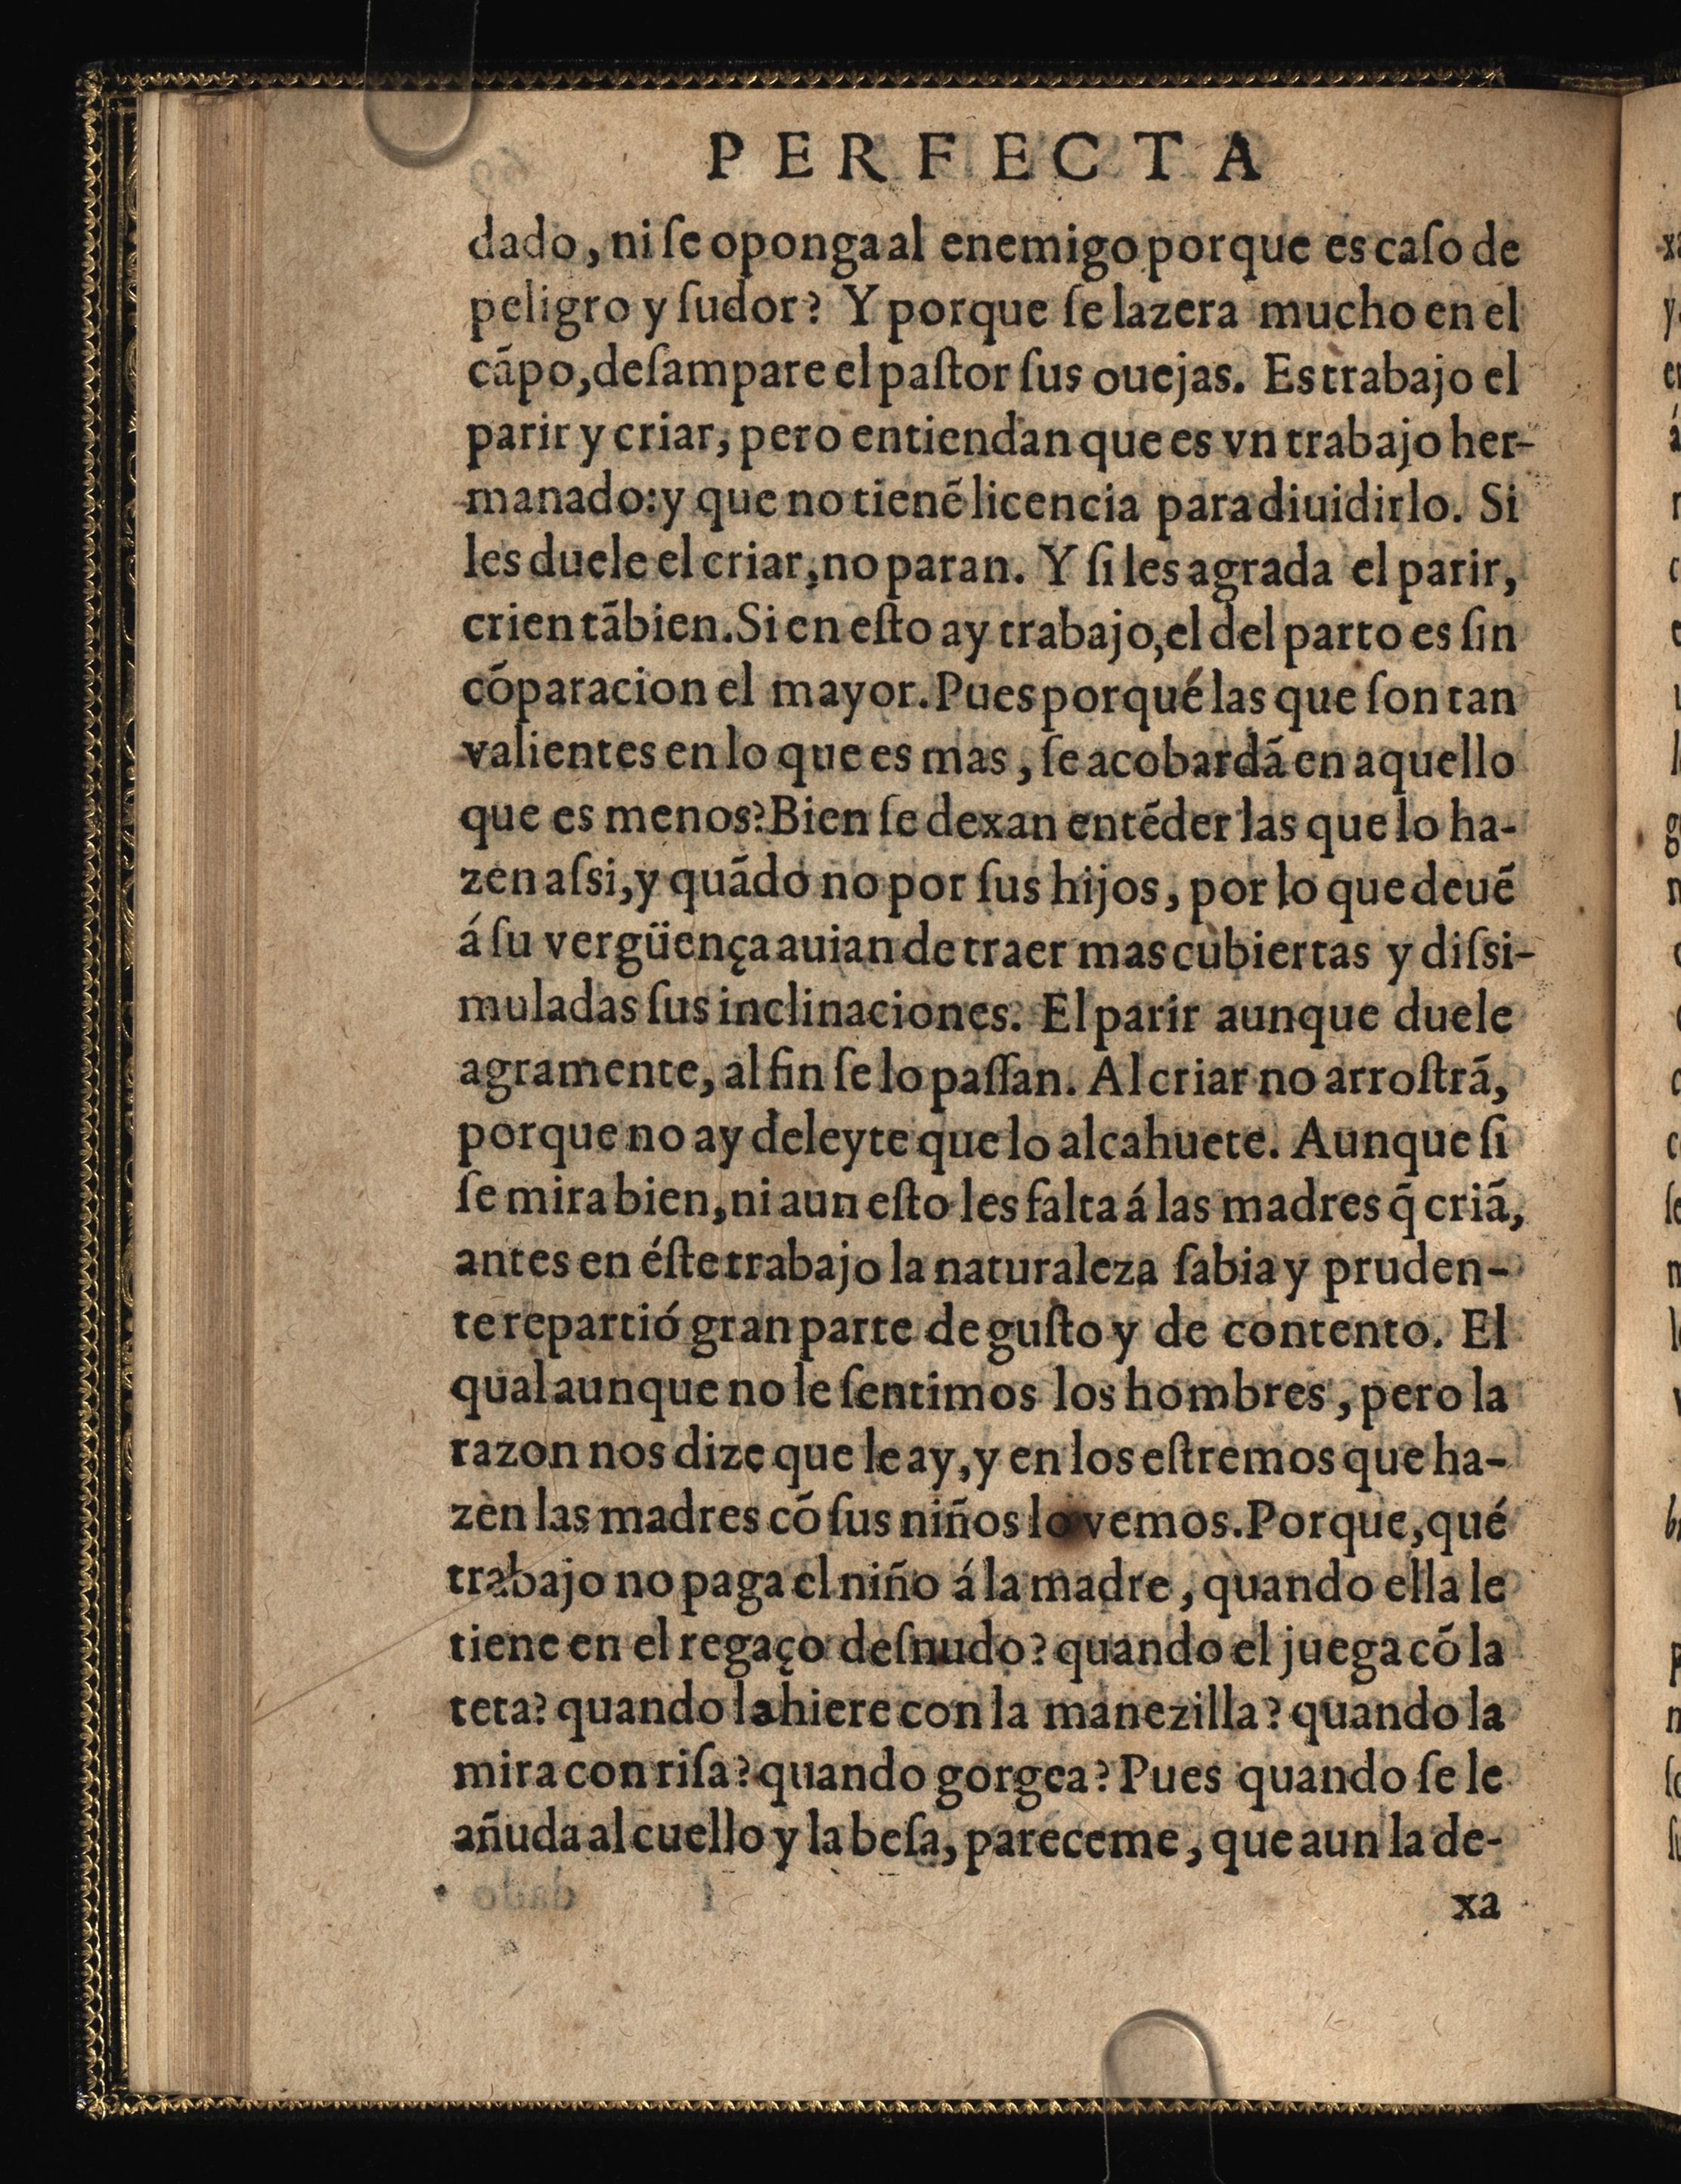 PERFECTA
dado, ni ſe oponga al enemigo porque es caſo de
peligro y ſudor? Y porque ſe lazera mucho en el
cãpo, deſampare el paſtor ſus ouejas. Es trabajo el
parir y criar, pero entiendan que es vn trabajo her-
manado: y que no tienẽ licencia para diuidirlo. Si
les duele el criar, no paran. Y ſi les agrada el parir,
crien tãbien. Si en eſto ay trabajo, el del parto es ſin
cõparacion el mayor. Pues porqué las que ſon tan
valientes en lo que es mas, ſe acobardã en aquello
que es menos? Bien ſe dexan entẽder las que lo ha-
zen aſsi, y quãdo no por ſus hijos, por lo que deuẽ
á ſu vergüença auian de traer mas cubiertas y diſsi-
muladas ſus inclinaciones. El parir aunque duele
agramente, al fin ſe lo paſſan. Al criar no arroſtrã,
porque no ay deleyte que lo alcahuete. Aunque ſi
ſe mira bien, ni aun eſto les falta á las madres q̃ criã,
antes en éſte trabajo la naturaleza ſabia y pruden-
te repartió gran parte de guſto y de contento. El
qual aunque no le ſentimos los hombres, pero la
razon nos dize que le ay, y en los eſtremos que ha-
zen las madres cõ ſus niños lo vemos. Porque, qué
trabajo no paga el niño á la madre, quando ella le
tiene en el regaço deſnudo? quando el juega cõ la
teta? quando la hiere con la manezilla? quando la
mira con riſa? quando gorgea? Pues quando ſe le
añuda al cuello y la beſa, pareceme, que aun la de-
xa